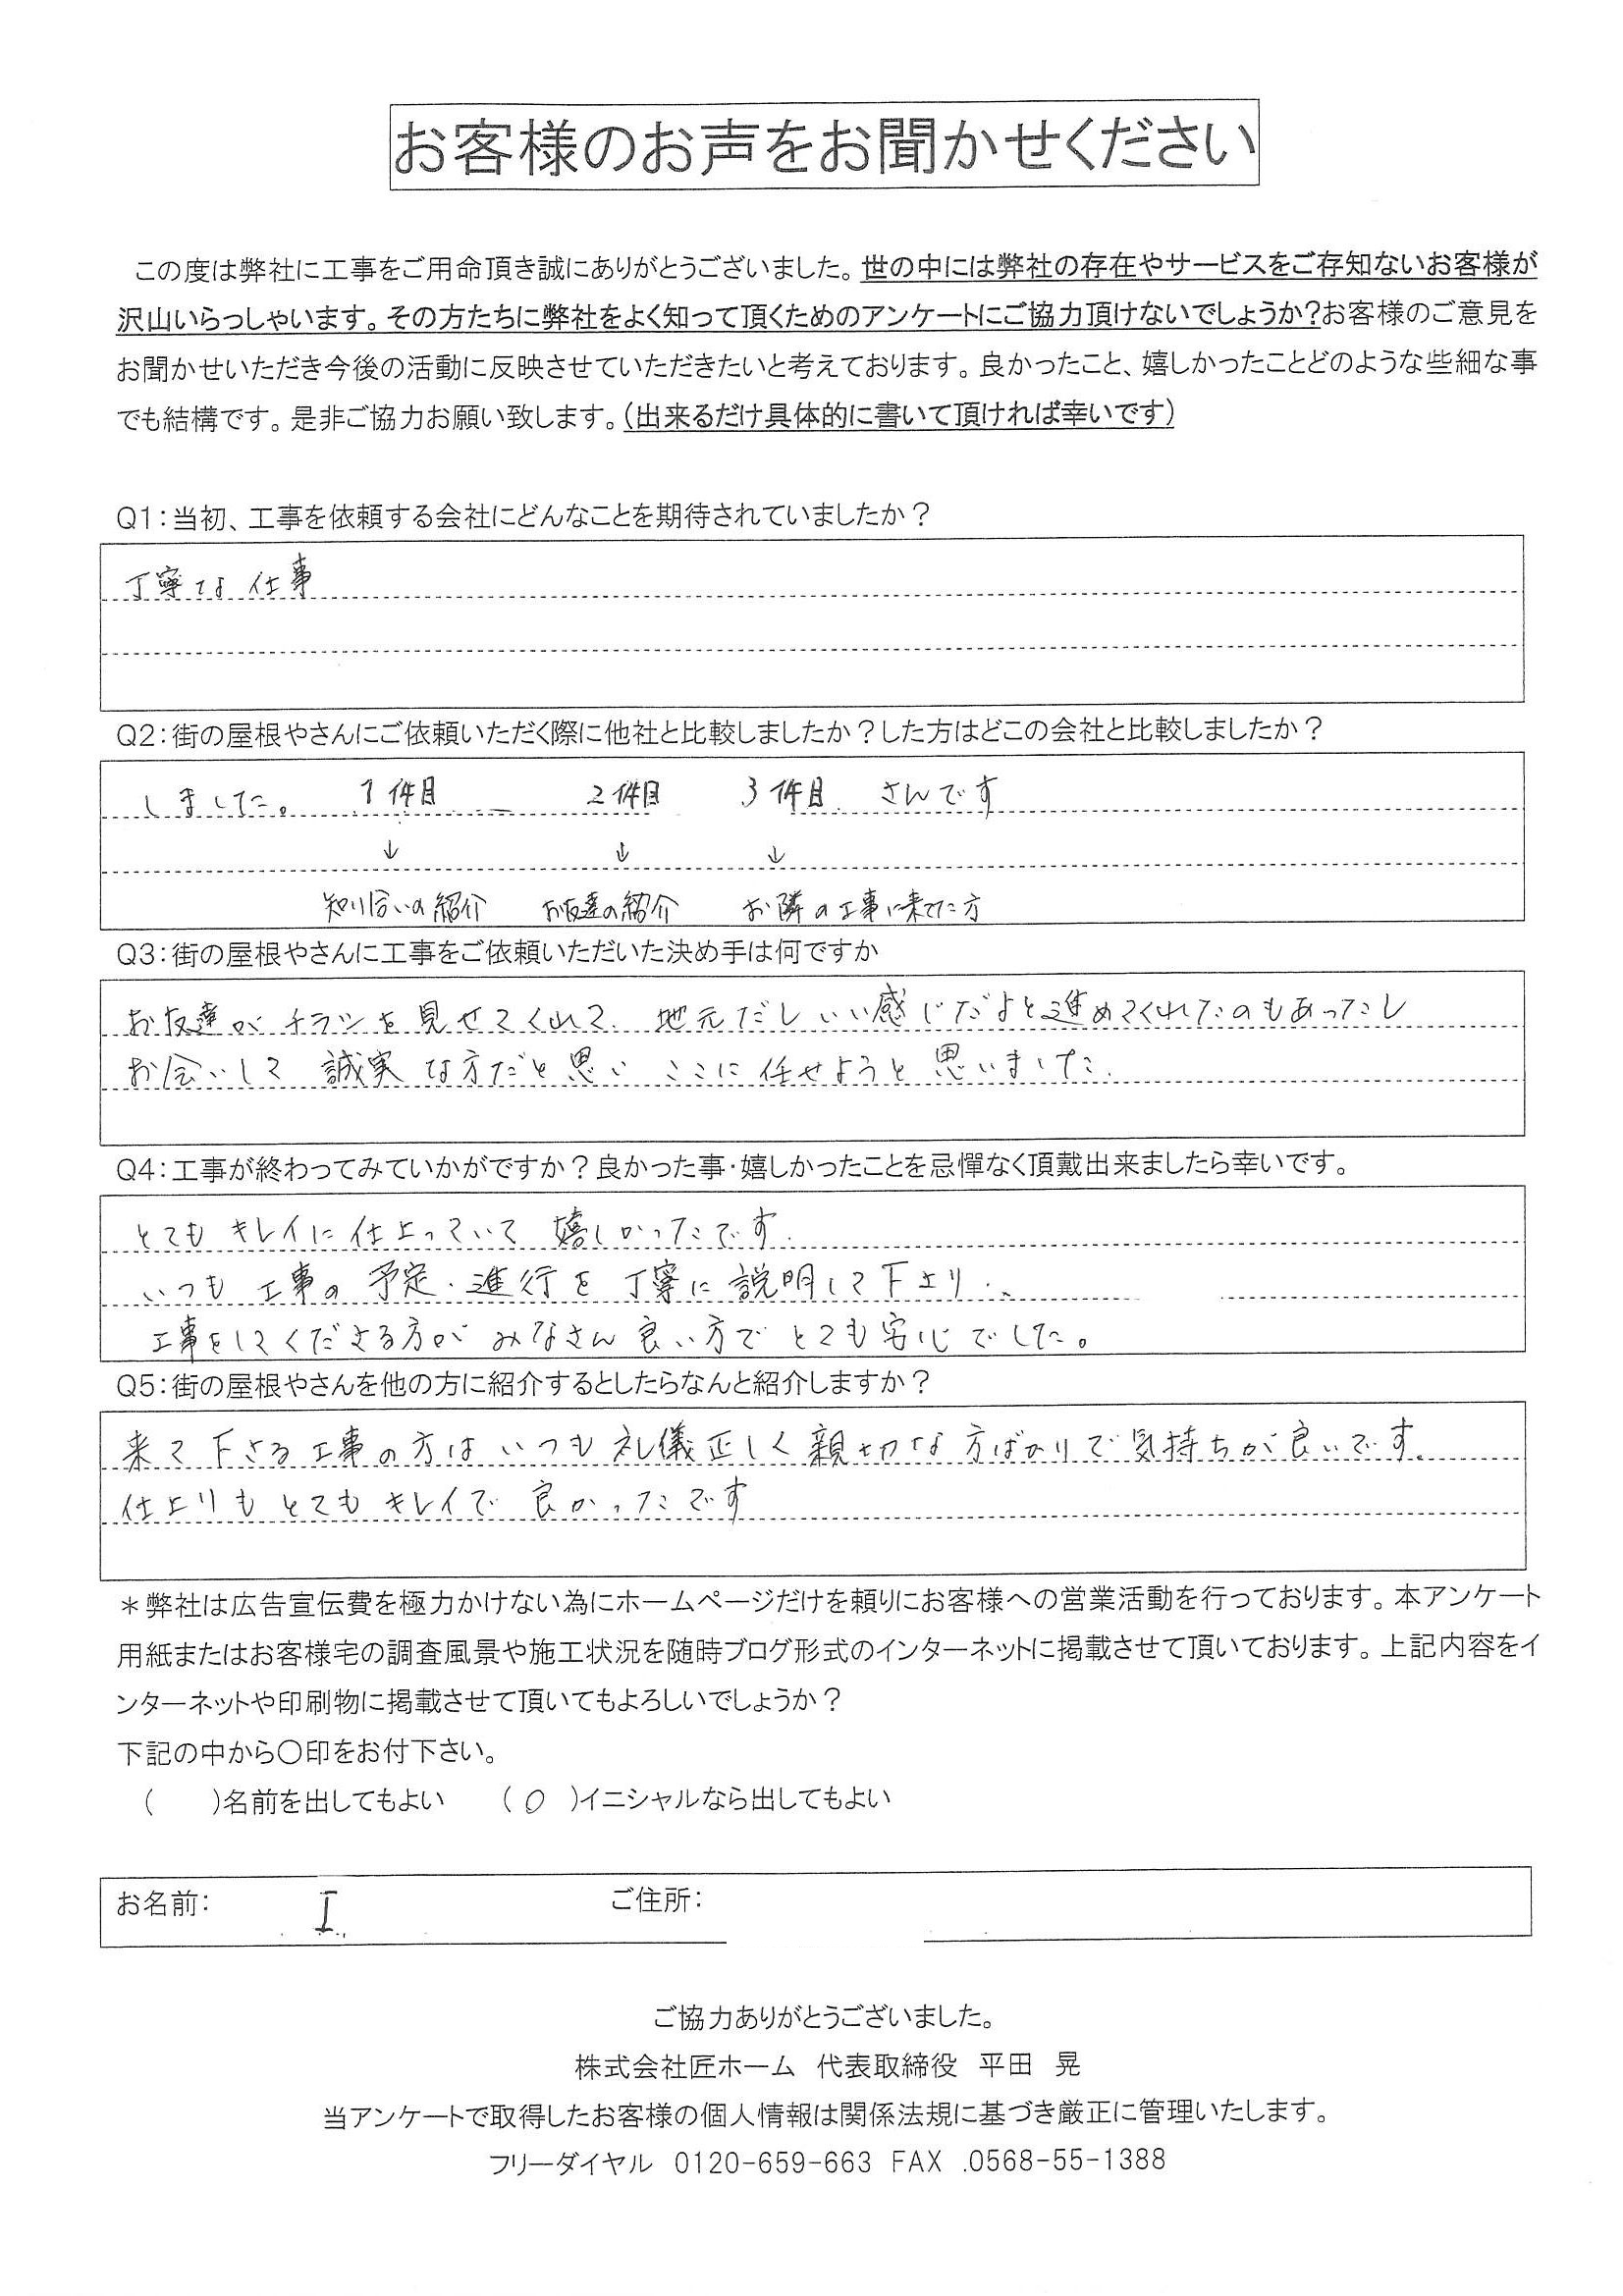 お客様のお声をお聞かせください
この度は弊社に工事をご用命頂き誠にありがとうございました。世の中には弊社の存在やサービスをご存知ないお客様が
沢山いらっしゃいます。その方たちに弊社をよく知って頂くためのアンケートにご協力頂けないでしょうか?お客様のご意見を
お聞かせいただき今後の活動に反映させていただきたいと考えております。良かったこと、嬉しかったことどのような些細な事
でも結構です。是非ご協力お願い致します。(出来るだけ具体的に書いて頂ければ幸いです)
Q1:当初、工事を依頼する会社にどんなことを期待されていましたか?
丁寧な仕事
Q2:街の屋根やさんにご依頼いただく際に他社と比較しましたか?した方はどこの会社と比較しましたか?
しました。 1件目 2件目 3件目 さんです
↓ ↓ ↓
知り合いの紹介 お友達の紹介 お隣の工事に来てた方
Q3:街の屋根やさんに工事をご依頼いただいた決め手は何ですか
お友達がチラシを見せてくれて、地元だしいい感じだよと進めてくれたのもあったし
お会いして 誠実な方だと思い ここに任せようと思いました.
Q4:工事が終わってみていかがですか?良かった事・嬉しかったことを忌憚なく頂戴出来ましたら幸いです。
とてもキレイに仕上っていて 嬉しかったです.
いつも工事の予定・進行を丁寧に説明して下さり、
工事をしてくださる方が みなさん良い方でとても安心でした。
Q5:街の屋根やさんを他の方に紹介するとしたらなんと紹介しますか?
来て下さる工事の方はいつも礼儀正しく親切な方ばかりで気持ちが良いです.
仕上りもとてもキレイで 良かったです
*弊社は広告宣伝費を極力かけない為にホームページだけを頼りにお客様への営業活動を行っております。本アンケート
用紙またはお客様宅の調査風景や施工状況を随時ブログ形式のインターネットに掲載させて頂いております。上記内容をイ
ンターネットや印刷物に掲載させて頂いてもよろしいでしょうか?
下記の中から〇印をお付下さい。
( )名前を出してもよい (〇)イニシャルなら出してもよい
お名前: I ご住所:
ご協力ありがとうございました。
株式会社匠ホーム 代表取締役 平田 晃
当アンケートで取得したお客様の個人情報は関係法規に基づき厳正に管理いたします。
フリーダイヤル 0120-659-663 FAX .0568-55-1388